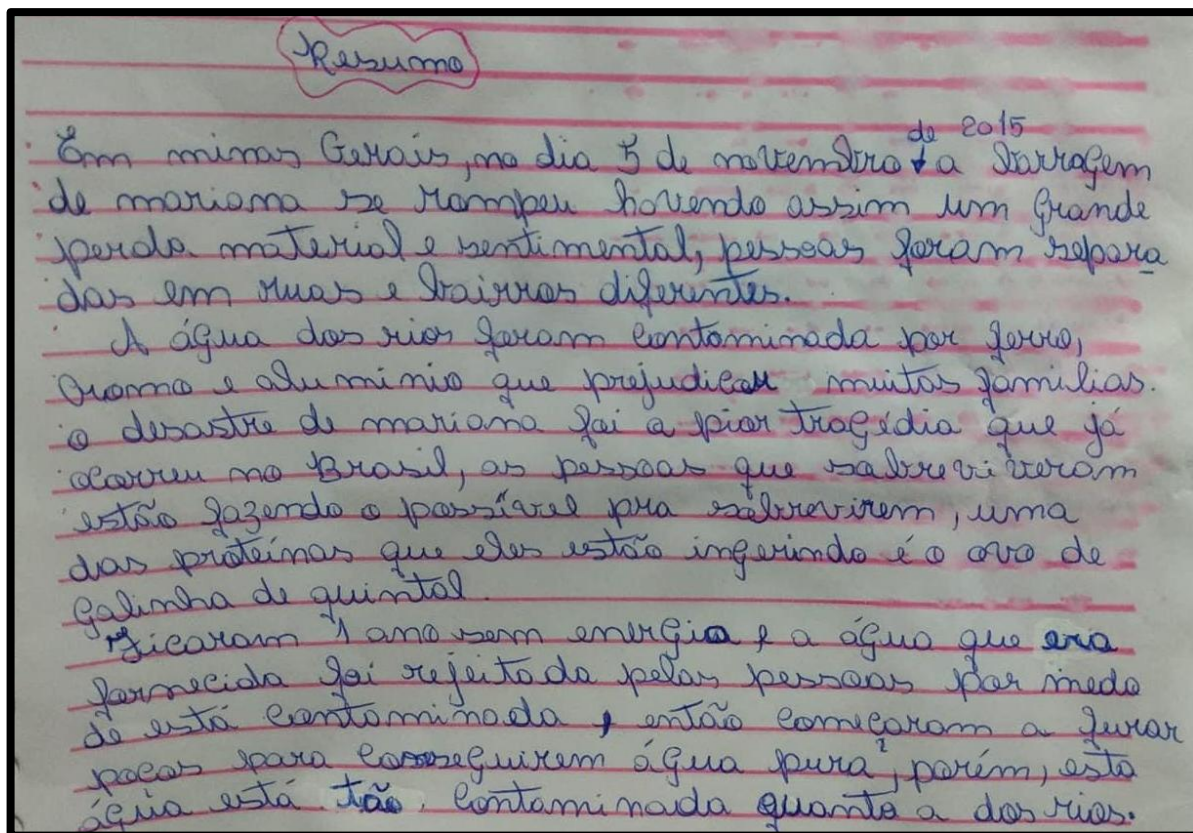 Resumo
Em minas Gerais, no dia 5 de novembro de 2015 a barragem
de mariana se rompeu havendo assim um grande
perda material e sentimental, pessoas foram separa
das em ruas e bairros diferentes.
A água dos rios foram contaminada por ferro,
cromo e aluminio que prejudicou muitas familias.
o desastre de mariana foi a pior tragédia que já
ocorreu no Brasil, as pessoas que sobreviveram
estão fazendo o possível pra sobrevirem, uma
das proteínas que eles estão ingerindo é o ovo de
galinha de quintal.
Ficaram 1 ano sem energia e a água que era
fornecida foi rejeitada pelas pessoas por medo
de está contaminada, então começaram a furar
poços para conseguirem água pura, porém, esta
água está tão contaminada quanto a dos rios.